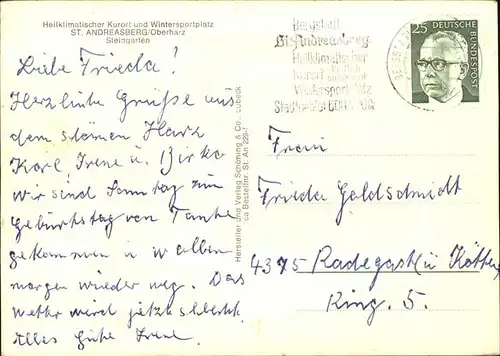 Heilklimatischer Kurort und Wintersportplatz
ST. ANDREASBERG/Oberharz
Steingarten
Liebe Frieda!
Herzliche Grüße aus
dem schönen Harz
Karl, Irene u. Birke
wir sind Sonntag zum
Geburtstag von Tante
gekommen u wollen
morgen wieder weg. Das
Wetter wird jetzt schlecht
Alles Gute Irene.
Hersteller und Verlag Schöning & Co., Lübeck
Bestellnr. St. An 229
Bergstadt
St. Andreasberg
Heilklimatischer
Kurort
Wintersportplatz
25 DEUTSCHE BUNDESPOST
Frau
Frieda Goldschmidt
4375 Radegast (ü Köthen
Ring. 5.